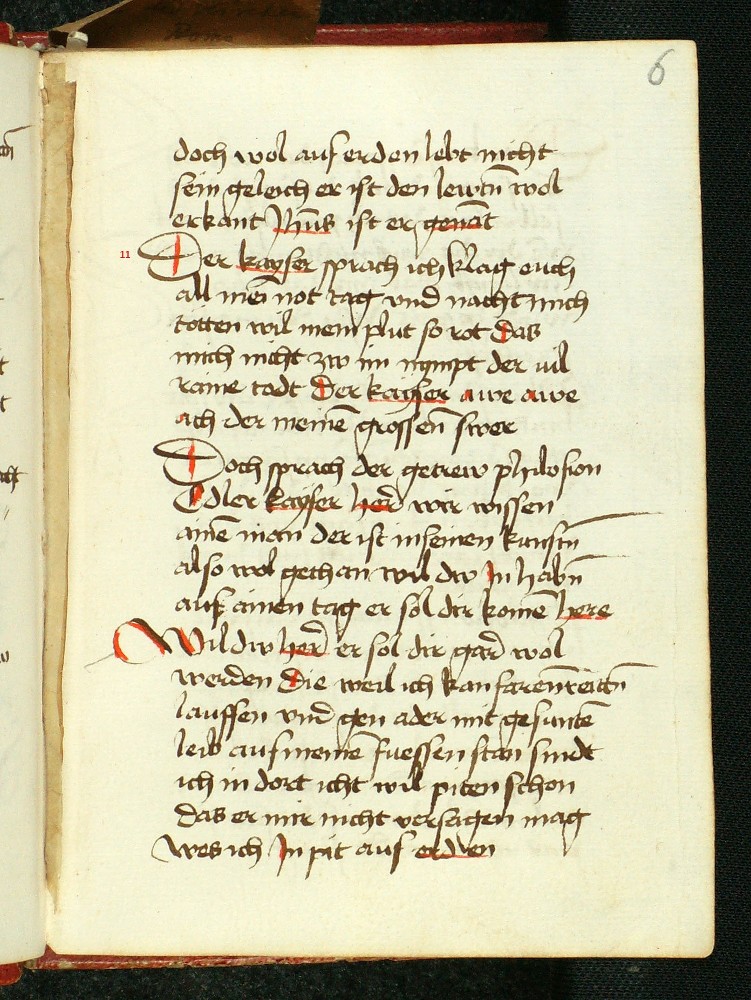 6
doch wol auf erden lebt nicht
sein geleich er ist den lewtn̄ wol
erkant ist er genāt
11
Der kayser sprach ich klag euch
all mei͞n not tag vnd nacht mich
totten wil mein plut so rot das
mich nicht zw im nympt der vil
raine todt Der kayser awe awe
ach der meinē grossen̄ swer
Doch sprach der getrew philosion
Edler kayser her̄ wir wissen
ainē man der ist in seinen kunstn̄
also wol gethan wil dw In habn̄
auf ainen tag er sol dir komē here
Wil dw her̄ er sol dir gar wol
werden Die weil ich kan faren reittn̄
lauffen vnd gen ader mit gesuntē
leib auf meinē fuessen stan findt
ich in dort icht wil piten schon
das er mir nicht versagen mag
wes ich In pit auf erden